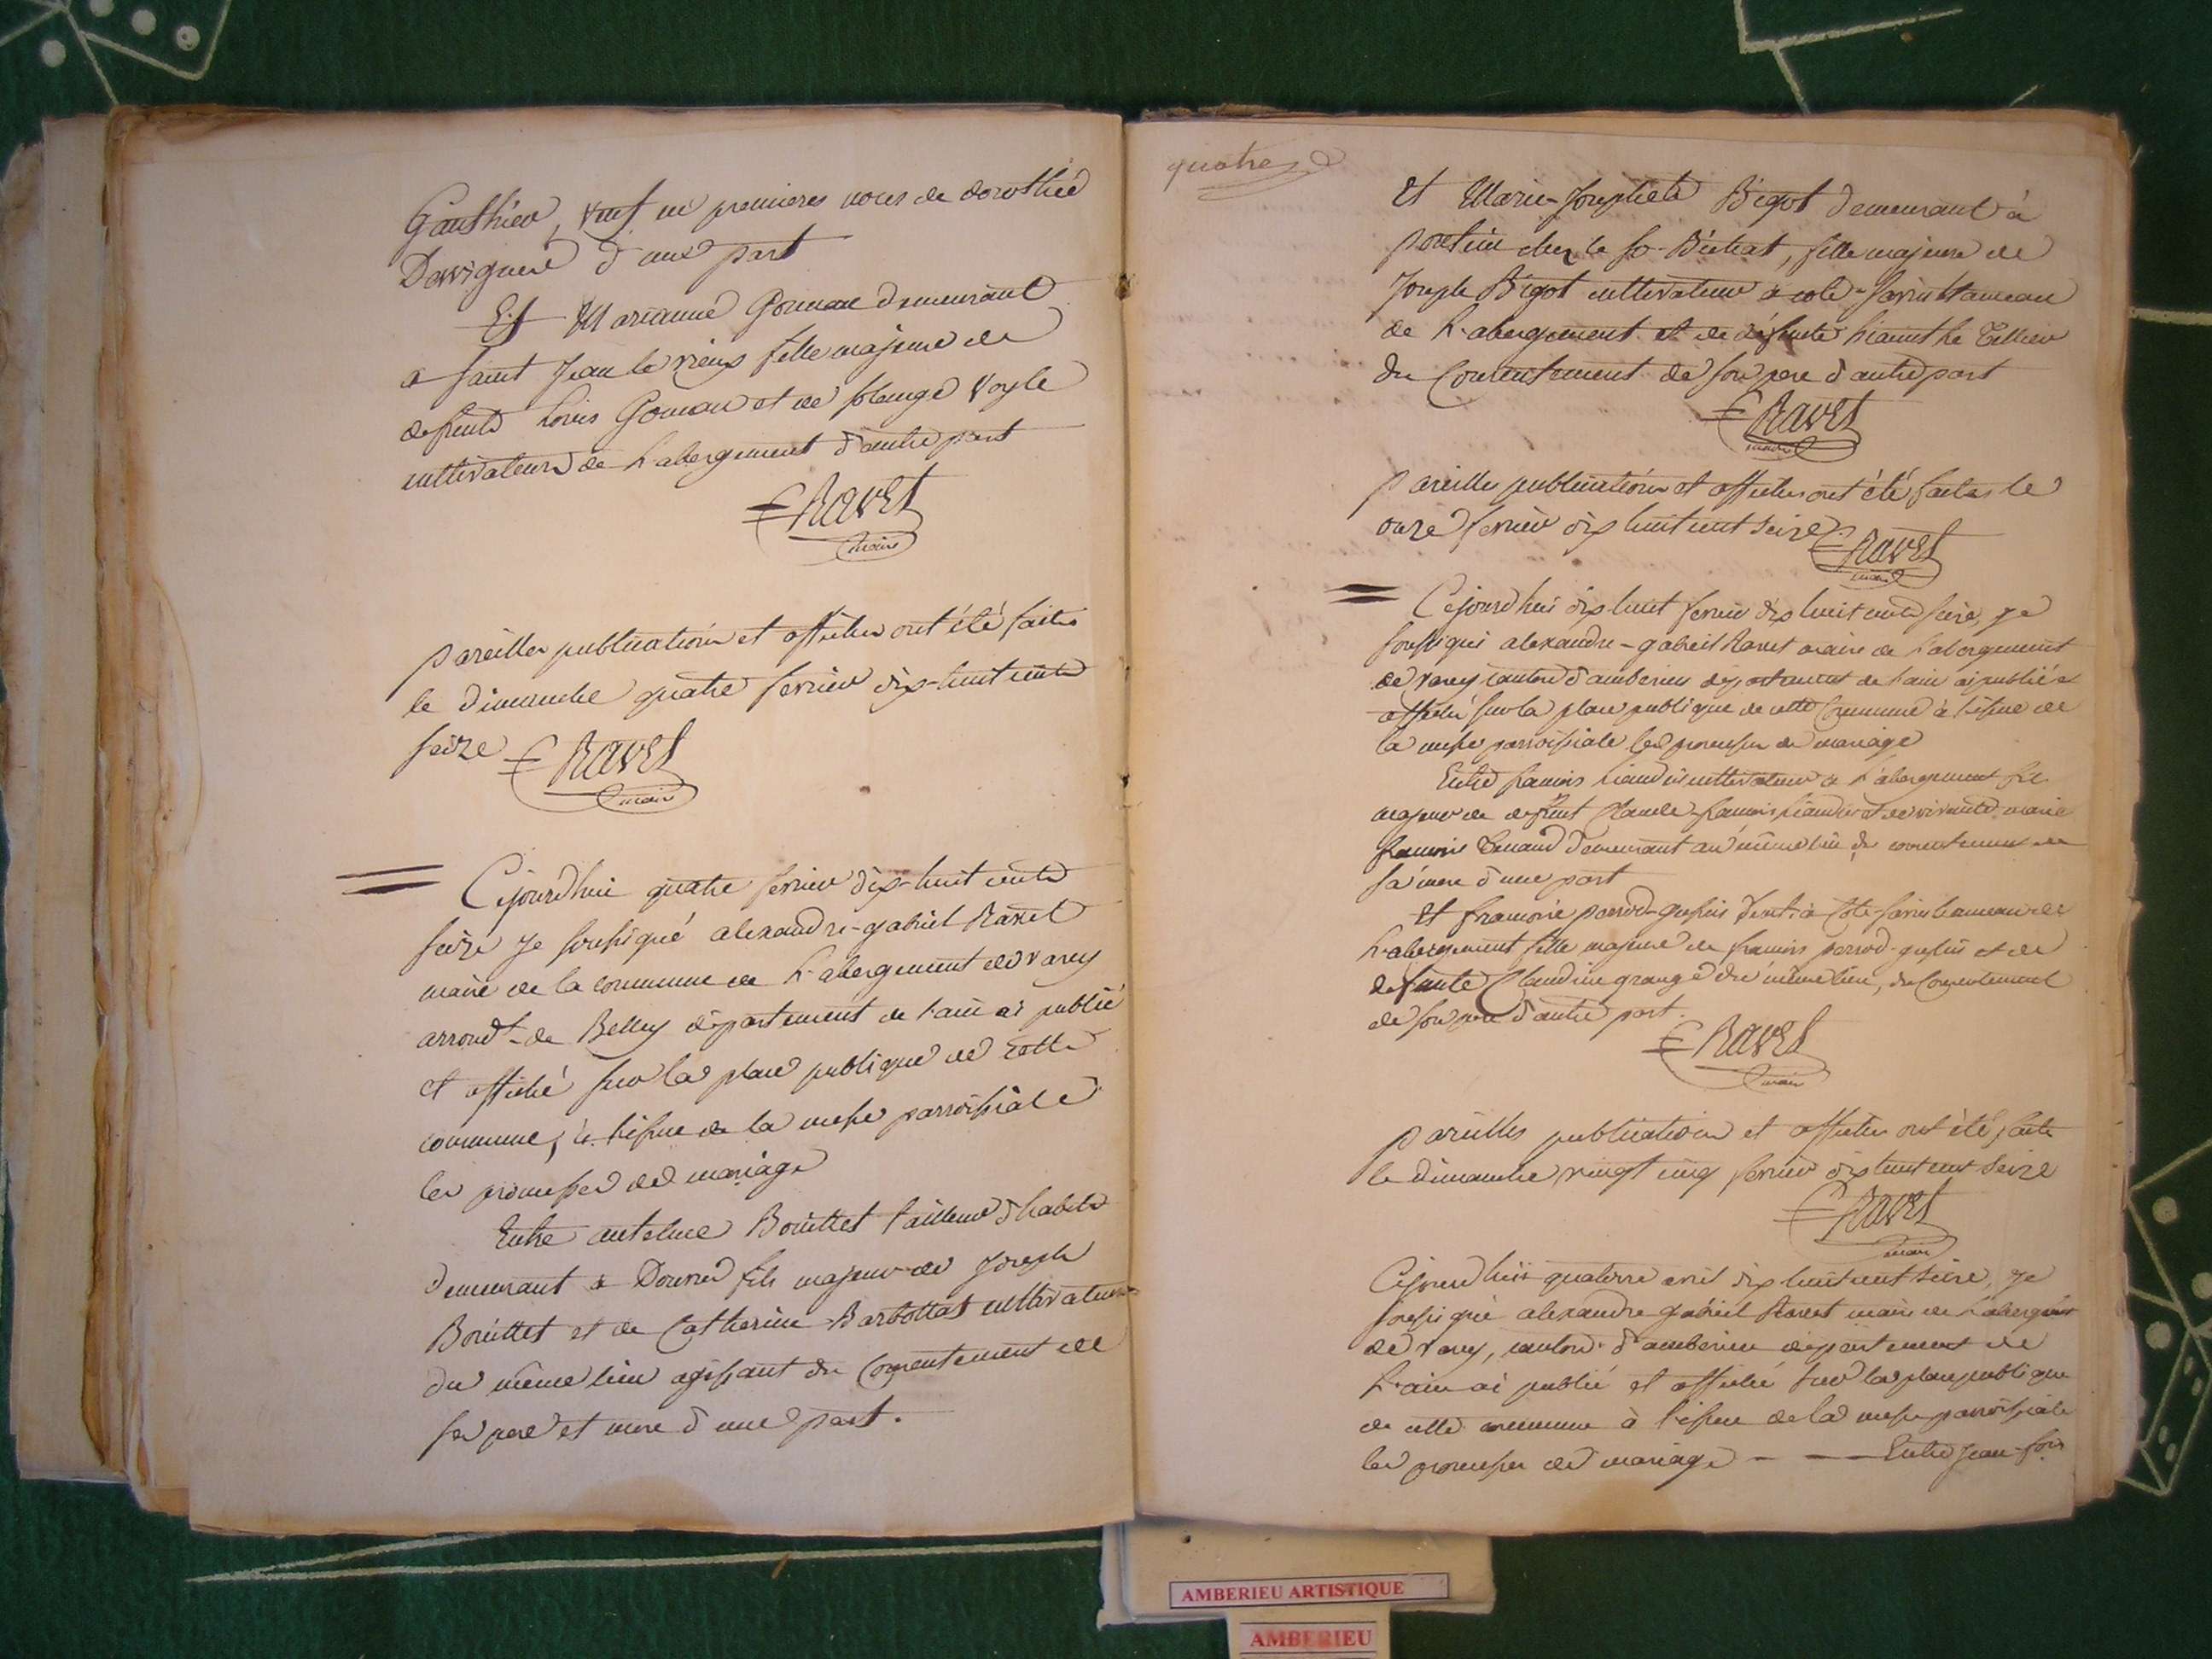 Gauthier, veuf en premieres noces de dorothée
d'une part
Et Marianne Gonnau demeurant
a saint Jean le vieux fille majeure de
defunts Louis Gonnau et de solange Voyle
cultivateurs de L'abergement d'autre part
Ravet
maire
pareilles publications et affiches ont été faites
le dimanche quatre fevrier dix-huit cents
seize Ravet
maire
Cejourdhui quatre fevrier dix-huit cents
seize je soussigné alexandre-gabriel Ravet
maire de la commune de L'abergement de varey
arrondt de Belley département de l'ain ai publié
et affiché sur la place publique de cette
commune, à l'issue de la messe parroissiale
les promesses de mariage
Entre antelme Bouillet tailleur d'habits
demeurant a Douvres fils majeur de Joseph
Bouillet et de Catherine Barbollat cultivateurs
du même lieu agissant du Consentement de
ses pere et mere d'une part.
quatre
Et Marie-Josephete Bigot demeurant à
chez le sr. fille majeure de
Joseph Bigot cultivateur a cote-savin hameau
de L'abergement et de défunte hiacinthe Tellier
du Consentement de son pere d'autre part
Ravet
maire
pareilles publications et affiches ont été faites le
onze fevrier dix huit cent seize. Ravet
maire
Cejourdhui dix huit fevrier dix huit cents seize, je
soussigné alexandre-gabriel Ravet maire de L'abergement
de varey canton d'amberieu département de l'ain ai publié et
affiché sur la place publique de cette Commune à l'issue de
la messe parroissiale les promesses de mariage
Entre francois cultivateur a L'abergement fils
majeur de defunt Claude-francois et de vivante marie
francoise Tenand demeurant au même lieu du consentement de
sa mere d'une part
Et francoise perrod-gessin demt. à Cote-savin hameau de
L'abergement fille majeure de francois perrod-gessin et de
defunte Claudine grange du même lieu, du Consentement
de son pere d'autre part.
Ravet
maire
pareilles publications et affiches ont été faites
le dimanche vingt cinq fevrier dix huit cent seize
Ravet
maire
Cejourdhui quatorze avril dix huit cent seize, je
soussigné alexandre gabriel Ravet maire de L'abergement
de varey, canton d'amberieu departement de
L'ain ai publié et affiché sur la place publique
de cette commune à l'issue de la messe parroissiale
les promesses de mariage - - Entre Jean-fois
AMBERIEU ARTISTIQUE
AMBERIEU